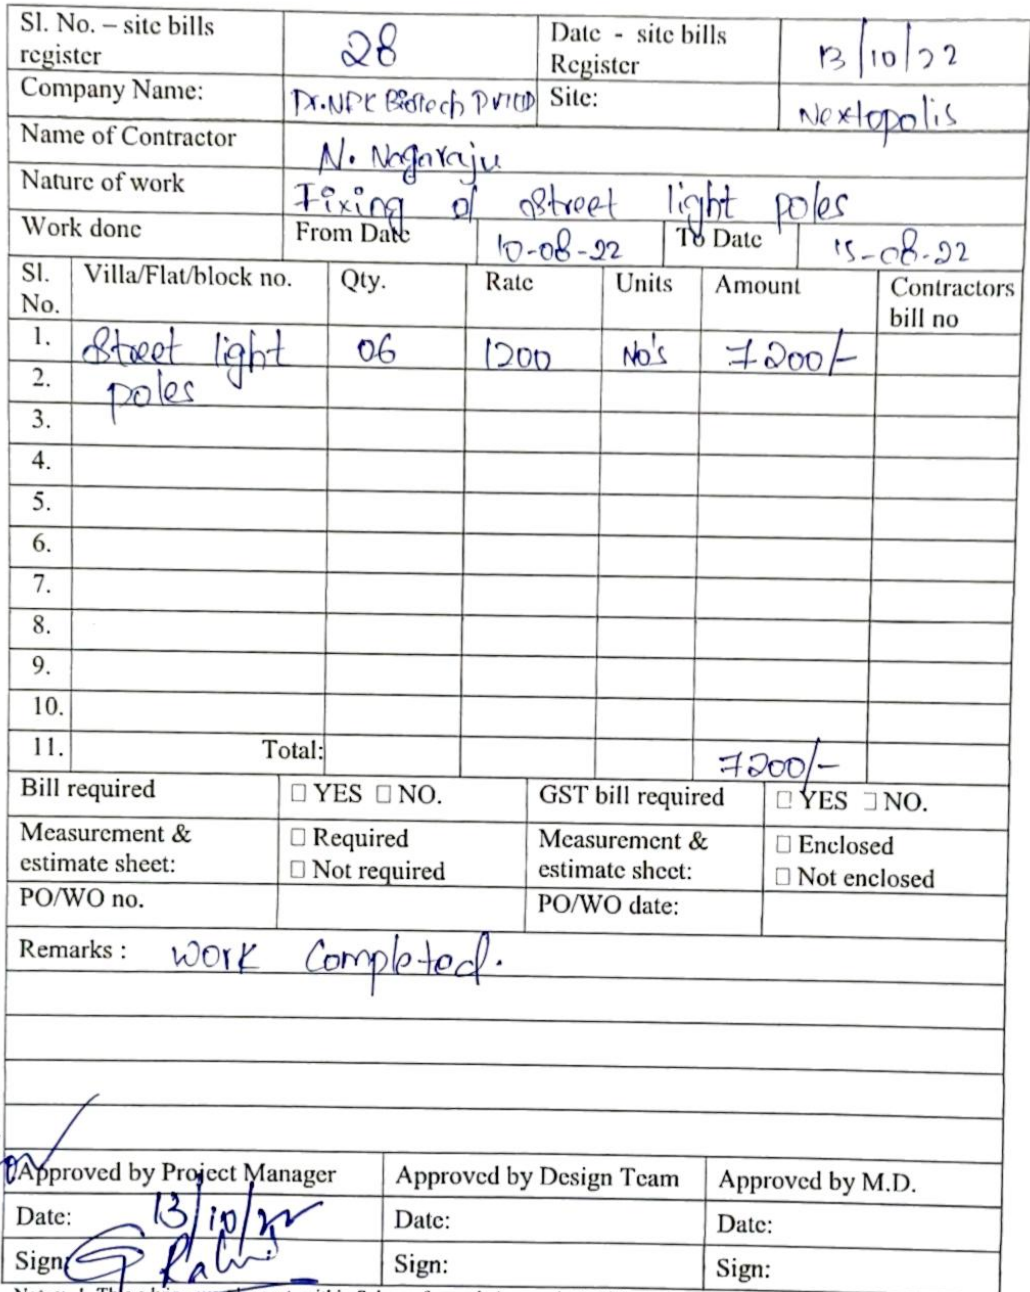 Sl. No. – site bills register 28 Date - site bills Register 13/10/22
Company Name: Dr.NPK Biotech Pvt Ltd Site: Nextopolis
Name of Contractor N. Nagaraju
Nature of work Fixing of street light poles
Work done From Date 10-08-22 To Date 15-08-22
Sl. No. Villa/Flat/block no. Qty. Rate Units Amount Contractors bill no
1. Street light 06 1200 No's 7200/-
2. poles
3.
4.
5.
6.
7.
8.
9.
10.
11. Total: 7200/-
Bill required □ YES □ NO. GST bill required □ YES □ NO.
Measurement & estimate sheet: □ Required □ Not required Measurement & estimate sheet: □ Enclosed □ Not enclosed
PO/WO no. PO/WO date:
Remarks : Work Completed.
Approved by Project Manager Approved by Design Team Approved by M.D.
Date: 13/10/22 Date: Date:
Sign: Sign: Sign: